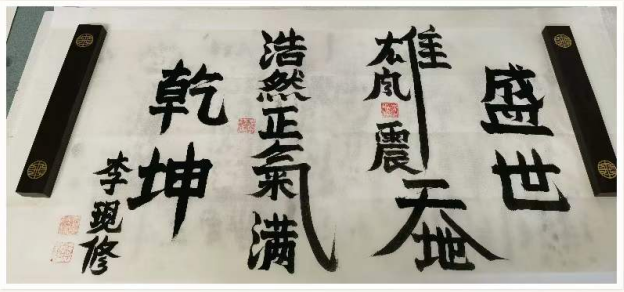 盛世
雄风震天地
浩然正氣满
乾坤
李現修